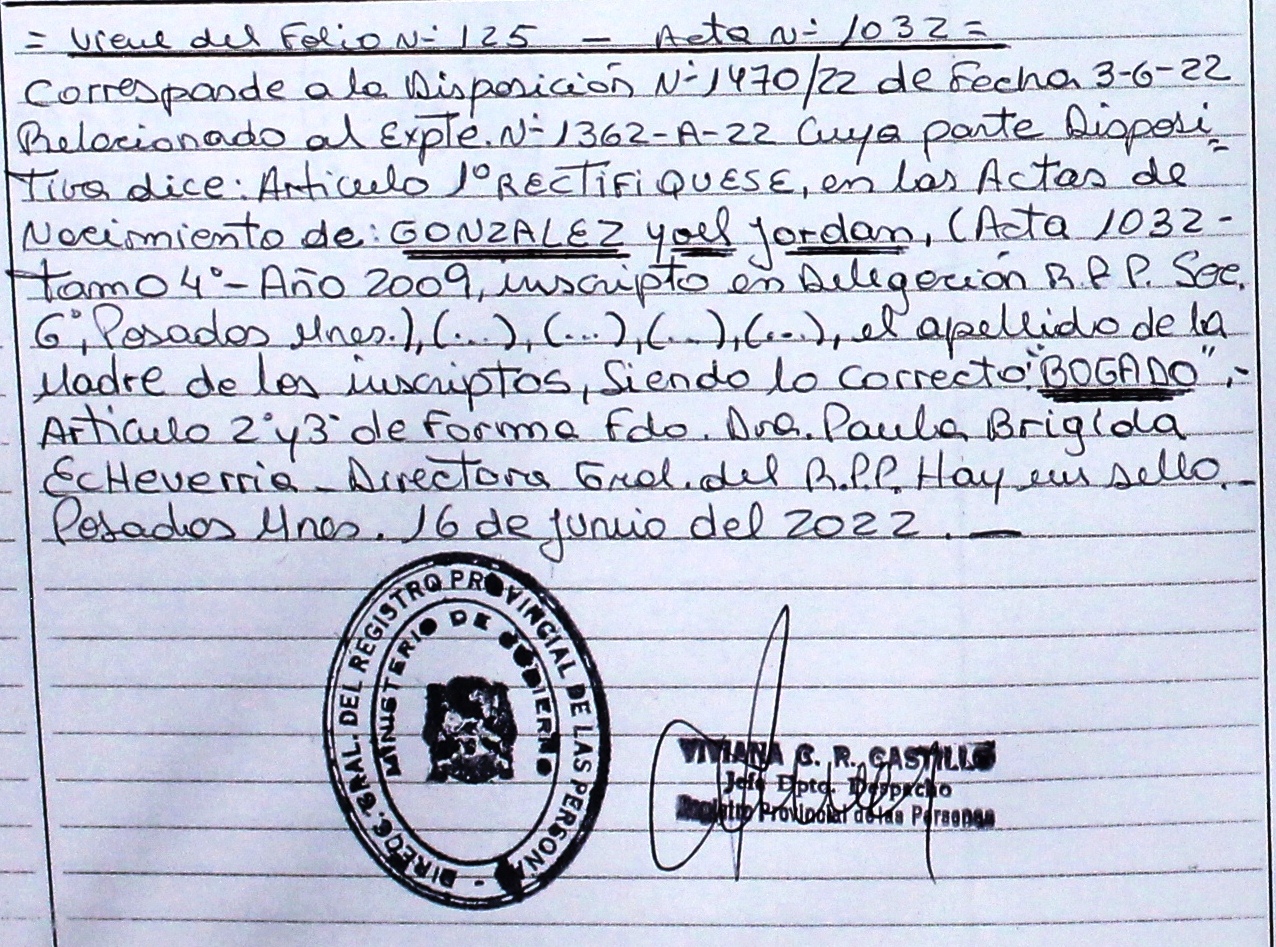 = Viene del Folio N- 125 - Acta N- 1032 =
Corresponde a la Disposición N-1470/22 de Fecha 3-6-22
Relacionado al Expte. N- 1362-A-22 Cuya parte Disposi
tiva dice: Articulo 1º RECTIFIQUESE, en las Actas de
Nacimiento de: GONZALEZ Yoel Jordan, (Acta 1032-
tamo 4°- Año 2009, inscripto en Delegación R.P.P. Sec.
6°, Posadas Mnes.), (...), (...), (...), (...), el apellido de la
Madre de los inscriptos, Siendo lo correcto: "BOGADO",-
Articulo 2° y 3° de Forma Fdo. Dra. Paula Brigida
EcHeverria - Directora Gral. del R.P.P. Hay un sello.-
Posadas Mnes. 16 de junio del 2022. —
DIREC. GRAL. DEL REGISTRO PROVINCIAL DE LAS PERSONAS -
MINISTERIO DE GOBIERNO
VIVIANA G. R. CASTILLO
Jefe Dpto. Despacho
Registro Provincial de las Personas